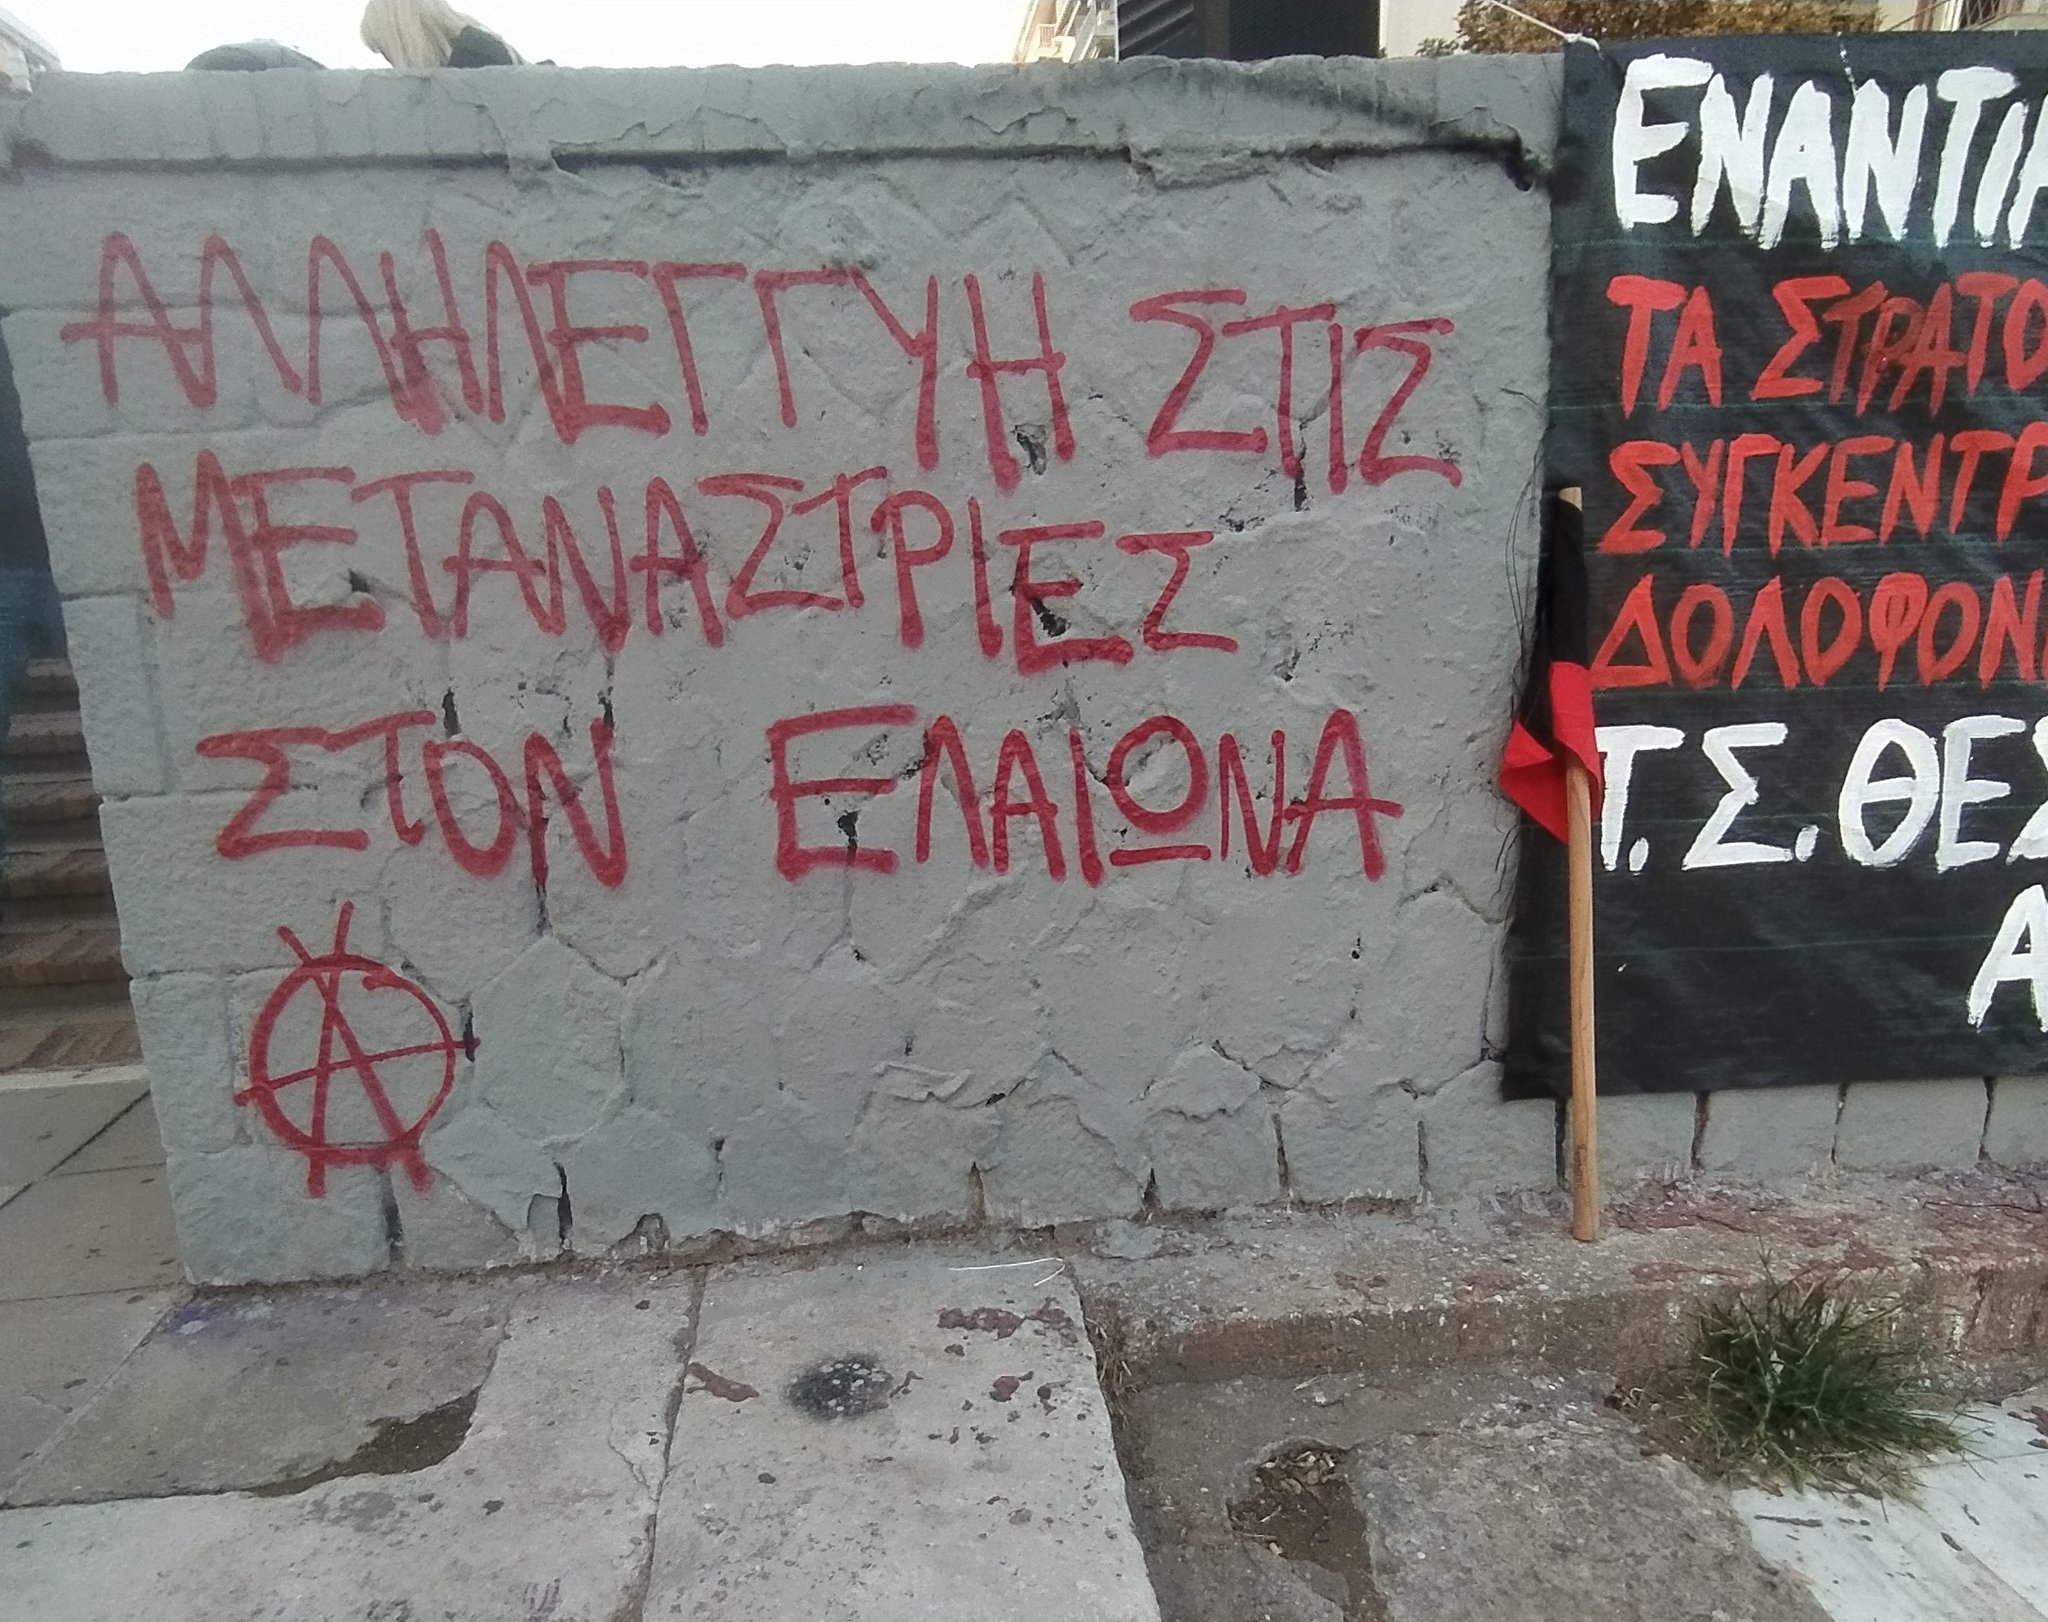 ΑΛΛΗΛΕΓΓΥΗ ΣΤΙΣ
ΜΕΤΑΝΑΣΤΡΙΕΣ
ΣΤΟΝ ΕΛΑΙΩΝΑ
ΕΝΑΝΤΙΑ
ΤΑ ΣΤΡΑΤΟ
ΣΥΓΚΕΝΤΡ
ΔΟΛΟΦΟΝ
Τ.Σ. ΘΕΣ
Α